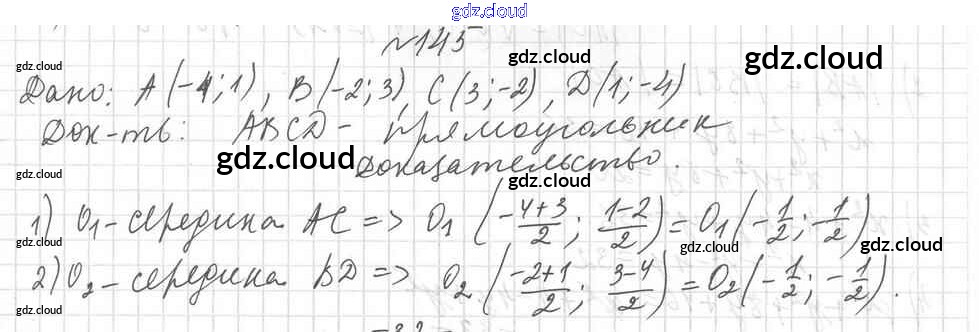 gdz.cloud
№145
gdz.cloud
gdz.cloud
gdz.cloud
Дано: A(-4;1), B(-2;3), C(3;-2), D(1;-4)
gdz.cloud
gdz.cloud
Док-ть: ABCD - прямоугольник
gdz.cloud
Доказательство.
gdz.cloud
gdz.cloud
1) O₁ - середина AC => O₁ (\frac{-4+3}{2}; \frac{1-2}{2}) = O₁(-\frac{1}{2}; -\frac{1}{2})
gdz.cloud
gdz.cloud
gdz.cloud
2) O₂ - середина BD => O₂ (\frac{-2+1}{2}; \frac{3-4}{2}) = O₂(-\frac{1}{2}; -\frac{1}{2}).
gdz.cloud
gdz.cloud